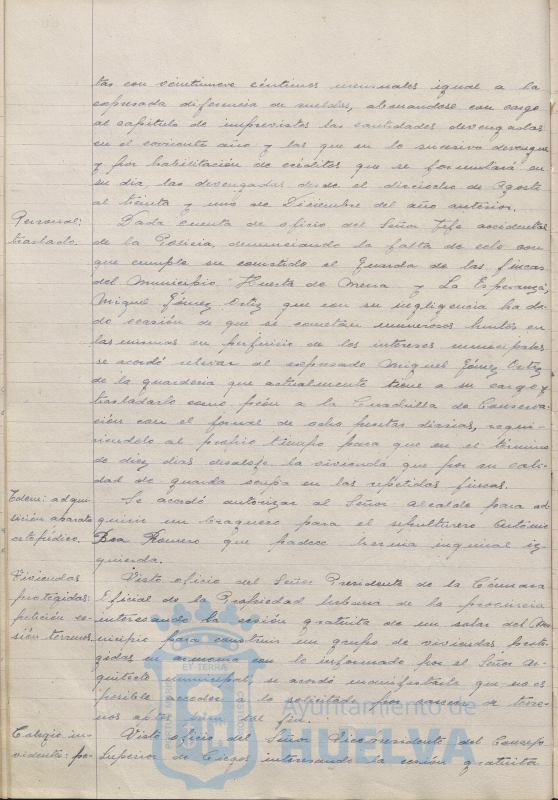 tas con veintinueve céntimos mensuales igual a la
expresada diferencia de sueldos, abonandose con cargo
al capitulo de imprevistos las cantidades devengadas
en el corriente año y las que en lo sucesivo devengue
y por habilitación de créditos que se formulará en
su dia, las devengadas desde el dieciocho de Agosto
al treinta y uno de Diciembre del año anterior.
Personal:
traslado.
Dada cuenta de oficio del Señor Jefe accidental
de la Policia, denunciando la falta de celo con
que cumple su cometido el Guarda de las fincas
del Municipio Huerta de Mena y La Esperanza,
Miguel Gómez Ortiz que con su negligencia ha da-
do ocasión de que se cometan numerosos hurtos en
las mismas en perjuicio de los intereses municipales
se acordó relevar al expresado Miguel Gómez Ortiz
de la guarderia que actualmente tiene a su cargo y
trasladarlo como peón a la Cuadrilla de Conserva-
ción con el jornal de ocho pesetas diarias, requi-
riendolo al propio tiempo para que en el término
de diez dias desaloje la vivienda que por su cali-
dad de guarda ocupa en las repetidas fincas.
Idem: adqui-
sición aparato
ortopédico.
Se acordó autorizar al Señor Alcalde para ad-
quirir un braguero para el sepulturero Antonio
Bea Romero que padece hernia inguinal iz-
quierda.
Viviendas
protegidas:
petición ce-
sión terrenos.
Visto oficio del Señor Presidente de la Cámara
Oficial de la Propiedad Urbana de la provincia
interesando la cesión gratuita de un solar del Mu-
nicipio para construir un grupo de viviendas prote-
gidas, en armonia con lo informado por el Señor Ar-
quitecto municipal, se acordó manifestarle que no es
posible acceder a lo solicitado por carecer de terre-
nos aptos para tal fin.
Colegio in-
vidente: pe-
Visto oficio del Señor Vicepresidente del Consejo
Superior de Ciegos interesando la cesión gratuita
Ayuntamiento de
HUELVA